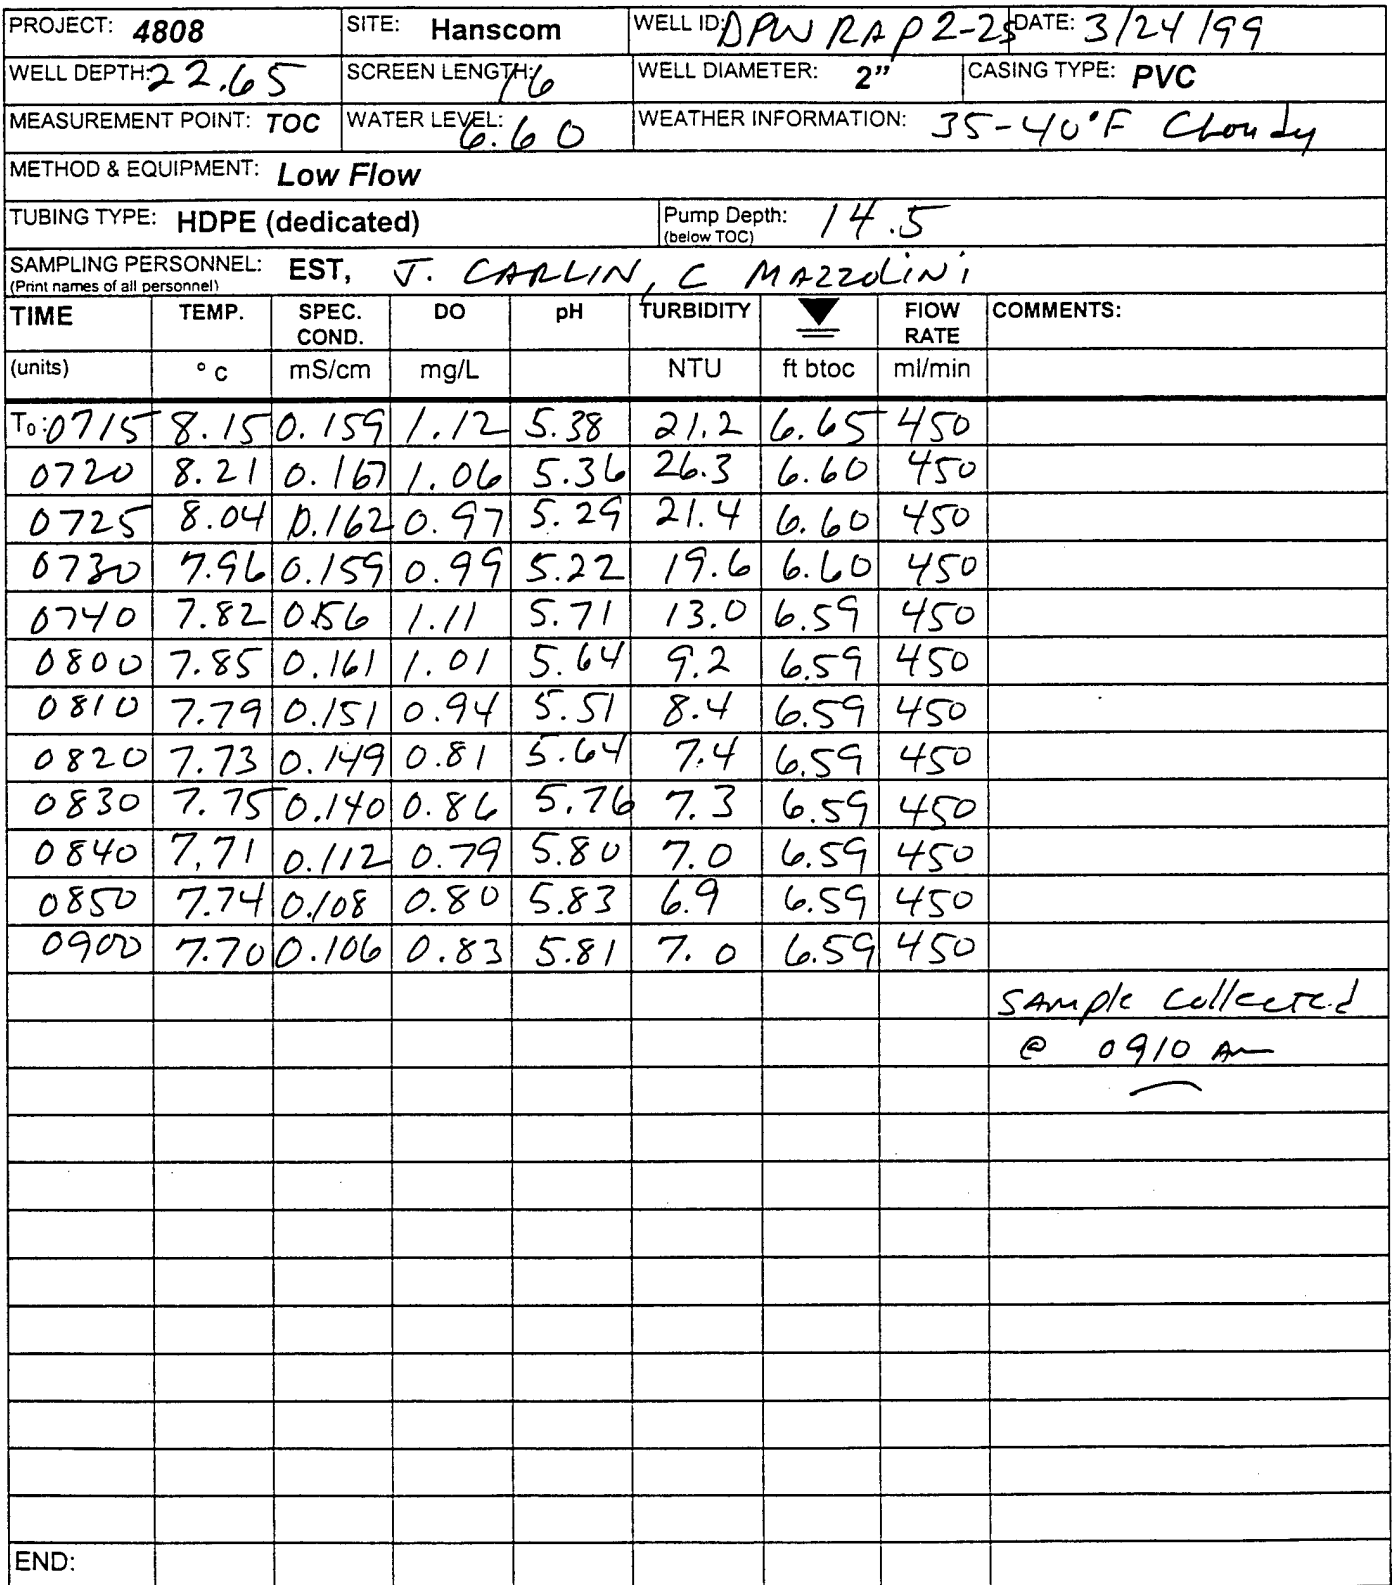 PROJECT: 4808 SITE: Hanscom WELL ID: DPW RAP 2-2S DATE: 3/24/99
WELL DEPTH: 22.65 SCREEN LENGTH: 16 WELL DIAMETER: 2" CASING TYPE: PVC
MEASUREMENT POINT: TOC WATER LEVEL: 6.60 WEATHER INFORMATION: 35-40°F Cloudy
METHOD & EQUIPMENT: Low Flow
TUBING TYPE: HDPE (dedicated) Pump Depth: 14.5
(below TOC)
SAMPLING PERSONNEL: EST, J. CARLIN, C MAZZOLINI
(Print names of all personnel)
TIME TEMP. SPEC. COND. DO pH TURBIDITY FlOW RATE COMMENTS:
(units) °C mS/cm mg/L NTU ft btoc ml/min
T0: 0715 8.15 0.159 1.12 5.38 21.2 6.65 450
0720 8.21 0.167 1.06 5.36 26.3 6.60 450
0725 8.04 0.162 0.97 5.29 21.4 6.60 450
0730 7.96 0.159 0.99 5.22 19.6 6.60 450
0740 7.82 0.156 1.11 5.71 13.0 6.59 450
0800 7.85 0.161 1.01 5.64 9.2 6.59 450
0810 7.79 0.151 0.94 5.51 8.4 6.59 450
0820 7.73 0.149 0.81 5.64 7.4 6.59 450
0830 7.75 0.140 0.86 5.76 7.3 6.59 450
0840 7.71 0.112 0.79 5.80 7.0 6.59 450
0850 7.74 0.108 0.80 5.83 6.9 6.59 450
0900 7.70 0.106 0.83 5.81 7.0 6.59 450
SAmple Collected
@ 0910 Am
END: